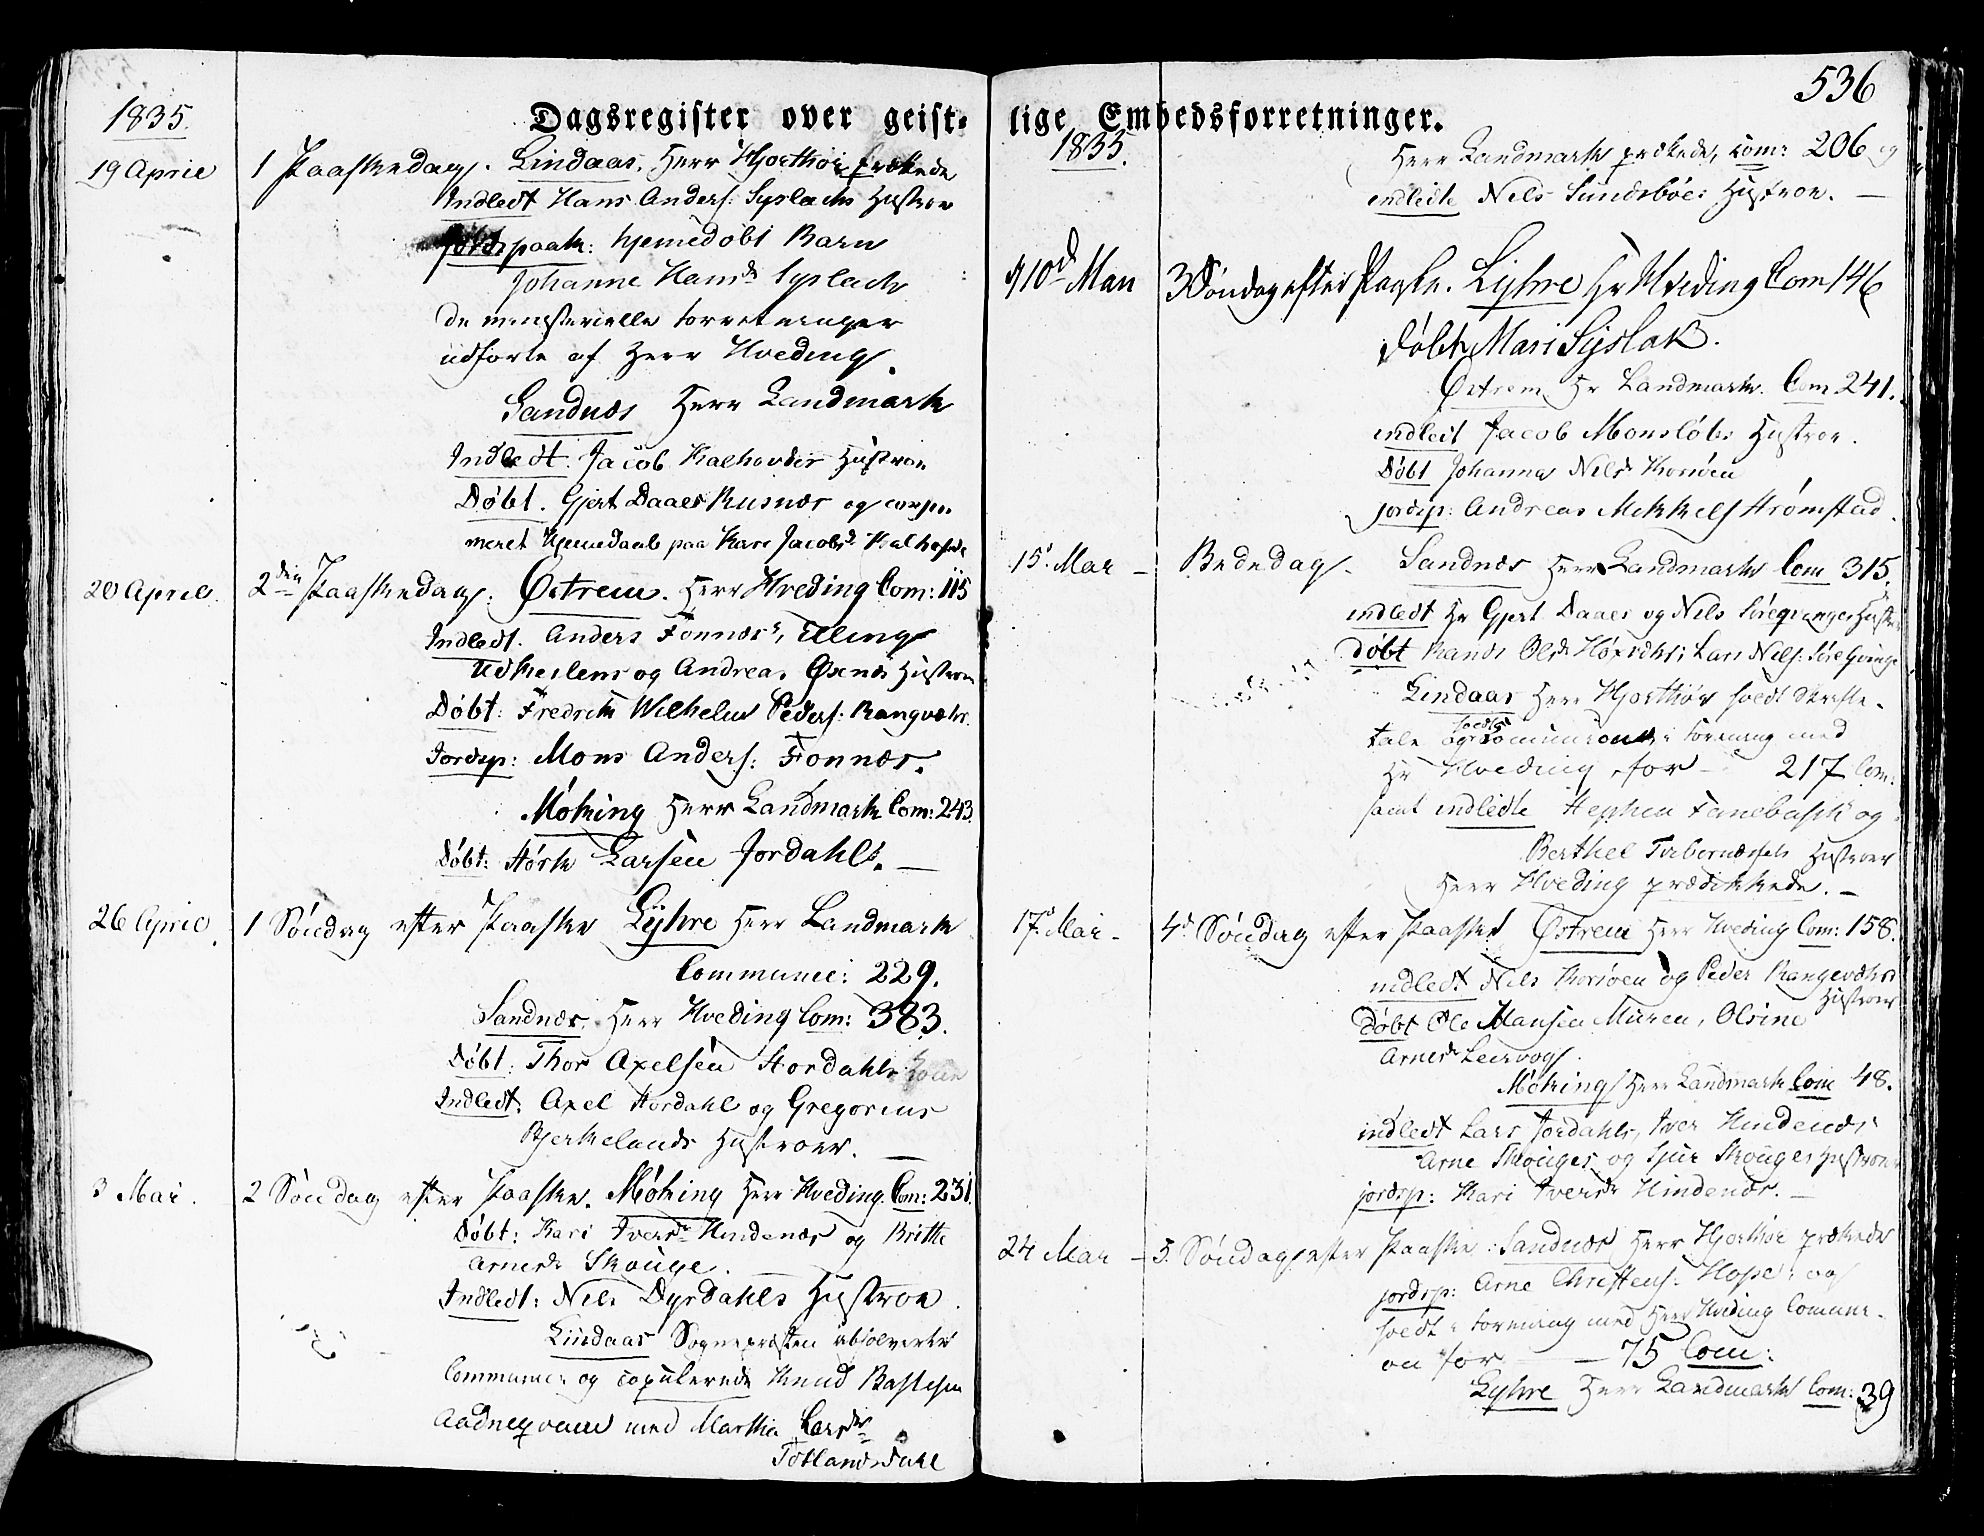 536
Dagsregister over geist-
lige Embedsforretninger.
1835.
19 April 1 Paaskedag. Lindaas. Herr Hjorthøi prækede
Indledt Hans Anders: Syslachs Hustroe
Jordspaak: hjemedøbt Barn
Johanne Hansdr Syslach
de ministerielle Forretninger
udførte af Herr Hveding.
Sandnæs Herr Landmark
Indledt. Jacob Kalhovdes Hustroe
Døbt. Gjert Daaes Rusnæs og confir-
meret Hjemedaab paa Kari Jacobsdr
20 April 2den Paaskedag. Østrem. Herr Hveding Com: 115
Indledt. Anders Fonnæs, Elling
Udkeilens og Andreas Øxnæs Hustroer
Døbt: Fredrik Wilhelm Peders: Rangvæhr.
Jordsp: Mons Anders: Fonnæs.
Møking Herr Landmark Com: 243.
Døbt: Størk Larsen Jordahl.
26 April 1 Søndag efter Paaske Lyhre Herr Landmark
Commune: 229.
Sandnæs. Herr Hveding Com: 383.
Døbt: Thor Axelsen Hordahl
Indledt: Axel Hordahl og Gregorius
Bjerkelands Hustroer.
3 Mai. 2 Søndag efter Paaske. Møking Herr Hveding. Com: 231.
Døbt: Kari Iversdr Hindenæs og Britte
Arnesdr Skouge.
Indledt: Nels Dyrdahls Hustroe.
Lindaas Sognepræsten absolverte
Commune: og copulerede Knud Bastesen
Aadneqvam med Martha Larsdtr
Totlandsdahl
1835.
Herr Landmark prækede, com: 206 og
indledte Nels Sundsbøes Hustroe.
10d Mai 3 Søndag efter Paaske. Lyhre Hr Hveding Com 146
Døbt Mari Syslak.
Østrem Hr Landmark. Com 241.
indledt Jacob Monsløbs Hustroe.
Døbt Johannes Nels
jordsp: Andreas Mikkels Strømstad.
15d Mai - Bededag. Sandnæs Herr Landmark Com 315.
indledt Hr Gjert Daaes og Nels
døbt Lars Nels:
Lindaas Herr Hjorthøi holdt Skrifte-
tale og Communion i Forening med
Hr Hveding, for - 217 Com:
samt indledte Stephen Fanebusk og
Berthel Tveberness Hustroer
Herr Hveding prædikkede. -
17d Mai - 4d Søndag efter Paaske Østrem Herr Hveding Com: 158.
indledt Nils og Peder Rangevæhrs
Hustroer
døbt Ole Hansen Muren, Olsine
Arnesdr Leervog.
Møking Herr Landmark Com 48.
indledt Lars Jordahls, Iver Hindenæs,
Arne Skouges og Sjur Skouges Hustroer
jordsp: Kari Iversdr Hindenæs. -
24 Mai - 5. Søndag efter Paaske: Sandnæs Herr Hjorthøi prækede
jordsp: Arne Christens: Hope: og
holdt i Forening med Herr Hveding Commun-
on for - 75 Com:
Lyhre Herr Landmark Com: 39